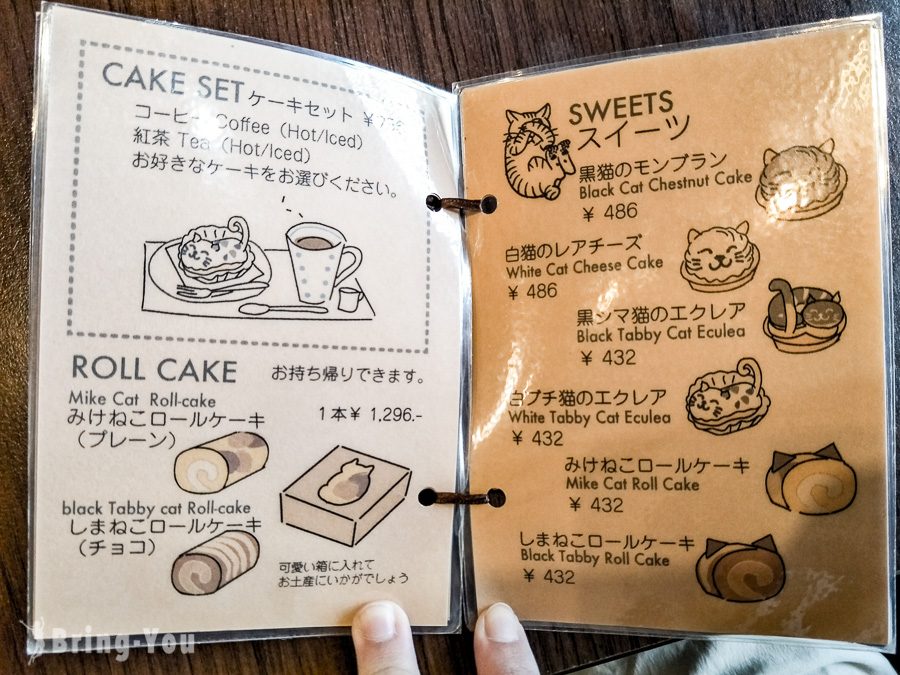 CAKE SET ケーキセット ¥
コーヒー Coffee (Hot/Iced)
紅茶 Tea (Hot/Iced)
お好きなケーキをお選びください。
ROLL CAKE お持ち帰りできます。
Mike Cat Roll-cake
みけねこロールケーキ
(プレーン)
1本¥ 1,296.-
black Tabby cat Roll-cake
しまねこロールケーキ
(チョコ)
可愛い箱に入れて
お土産にいかがでしょう
SWEETS
スイーツ
黒猫のモンブラン
Black Cat Chestnut Cake
¥ 486
白猫のレアチーズ
White Cat Cheese Cake
¥ 486
黒シマ猫のエクレア
Black Tabby Cat Eculea
¥ 432
白ブチ猫のエクレア
White Tabby Cat Eculea
¥ 432
みけねこロールケーキ
Mike Cat Roll Cake
¥ 432
しまねこロールケーキ
Black Tabby Roll Cake
¥ 432
Bring-You